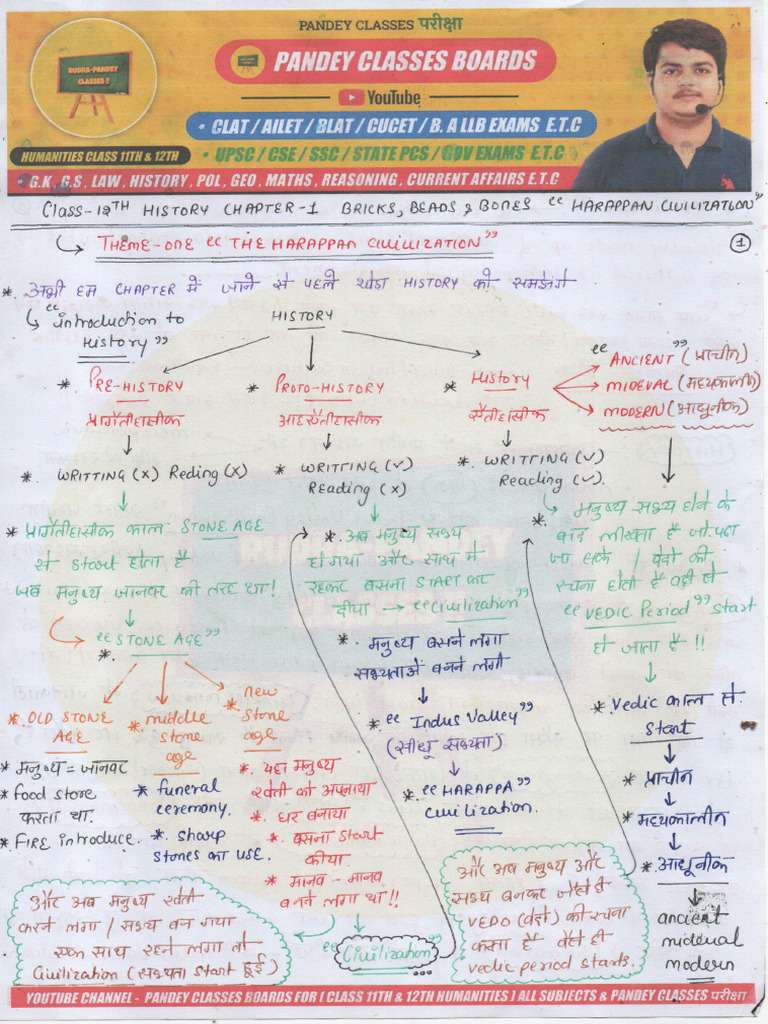 PANDEY CLASSES परीक्षा
RUDRA-PANDEY
CLASSES !!
PANDEY CLASSES BOARDS
YouTube
• CLAT / AILET / BLAT / CUCET / B. A LLB EXAMS E.T.C
HUMANITIES CLASS 11TH & 12TH
• UPSC / CSE / SSC / STATE PCS / GOV EXAMS E.T.C
• G.K , G.S , LAW , HISTORY , POL , GEO , MATHS , REASONING , CURRENT AFFAIRS E.T.C
Class-12TH HISTORY CHAPTER-1 BRICKS, BEADS & BONES “ HARAPPAN CIVILIZATION”
THEME-ONE “ THE HARAPPAN CIVILIZATION”
1
* अभी हम CHAPTER में जाने से पहले थोडा HISTORY को समझेगे
“introduction to
History”
HISTORY
* PRE-HISTORY
प्रागैतीहासीक
* PROTO-HISTORY
* History
“ ANCIENT (प्राचीन)”
MIDEVAL (मध्यकालीन)
MODERN (आधुनीक)
*. WRITTING (x) Reding (x)
*. WRITTING (✓)
REading (x)
*. WRITTING (✓)
Reading (✓).
* प्रागैतीहासीक काल STONE AGE
से start होता है
जब मनुष्य जानवर की तरह था!
“STONE AGE”
*.
* OLD STONE
AGE
* middle
stone
age
* new
stone
age
* मनुष्य = जानवर
* food store
करता था.
* FIRE introduce.
* funeral
ceremony.
*. sharp
stones का use.
*. यहा मनुष्य
खेती को अपनाया
*. घर बनाया
*. बसना start
कीया
* मानव - मानव
बनने लगा था!!
और अब मनुष्य खेती
करने लगा / सभ्य बन गया
साथ रहने लगा तो
Civilization (सभ्यता start हुई)
“Civilization”
*. अब मनुष्य सभ्य
हो गया और साथ मे
रहकर बसना START कर
दीया → “civilization”
*. मनुष्य बसने लगा
सभ्यताऐं बनने लगी
* “ Indus Valley”
(सींधू सभ्यता)
*. “HARAPPA”
civilization.
*. मनुष्य सभ्य होने के
बाद लीखता है जो पढा
जा सके / वेदो की
रचना होती है वही से
“VEDIC Period” start
हो जाता है !!
*. Vedic काल से
start
* प्राचीन
* मध्यकालीन
*. आधुनीक
ancient
mideval
modern
और अब मनुष्य और
सभ्य बनकर जैसे ही
VEDO (वेदों) की रचना
करता है वैसे ही
vedic period starts.
YOUTUBE CHANNEL - PANDEY CLASSES BOARDS FOR [ CLASS 11TH & 12TH HUMANITIES ] ALL SUBJECTS & PANDEY CLASSES परीक्षा